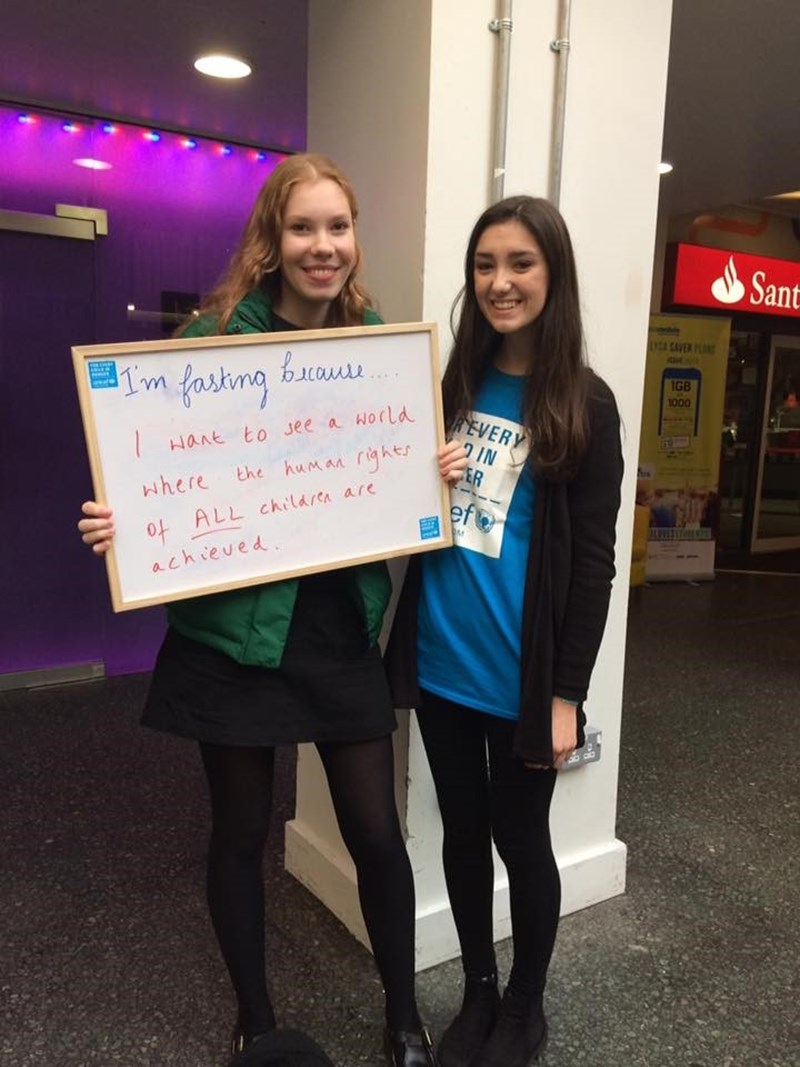 FOR EVERY
CHILD IN
DANGER
unicef
I'm fasting because....
I want to see a world
where the human rights
of ALL children are
achieved.
unicef
R EVERY
D IN
ER
ef
Sant
LYCA SAVER PLANS
1GB
1000